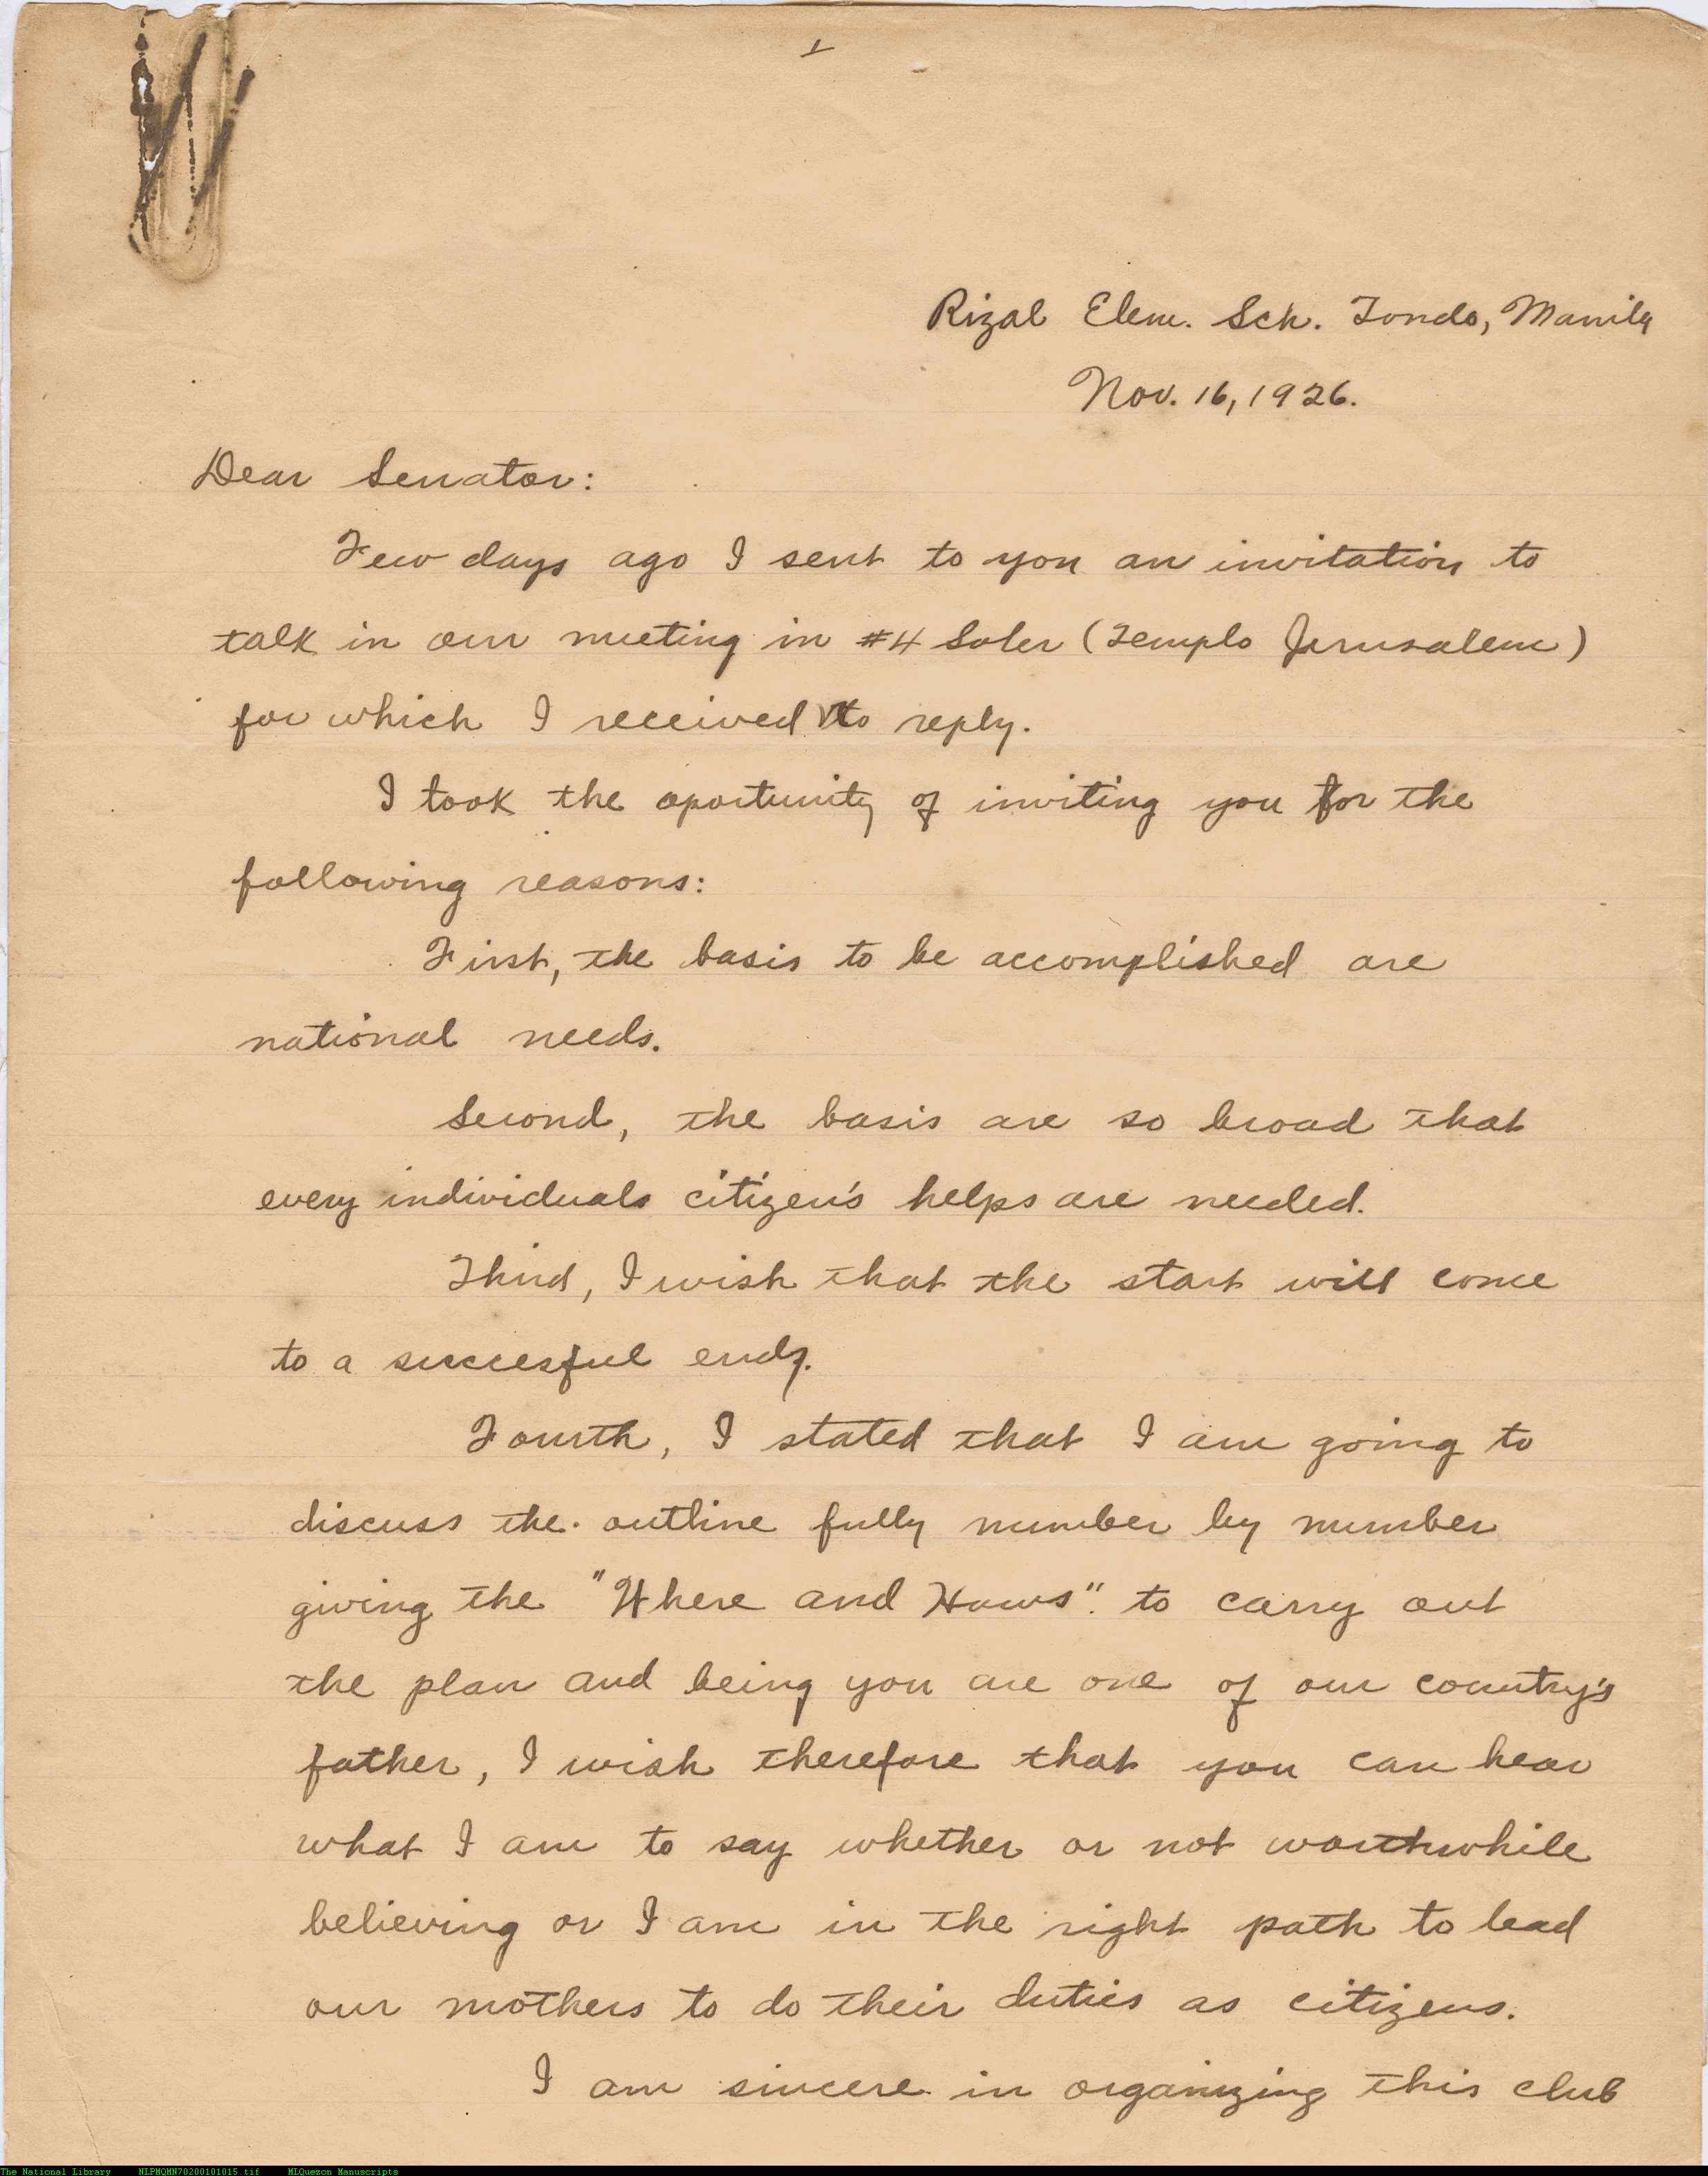 1
Rizal Elem. Sch. Tondo, Manila
Nov. 16, 1926.
Dear Senator:
Few days ago I sent to you an invitation to
talk in our meeting in #4 Soler (Templo Jerusalem)
for which I received no reply.
I took the oportunity of inviting you for the
following reasons:
First, the basis to be accomplished are
national needs.
Second, the basis are so broad that
every individuals citizen's helps are needed.
Third, I wish that the start will come
to a succesful end.
Fourth, I stated that I am going to
discuss the outline fully number by number
giving the "Where and Hows" to carry out
the plan and being you are one of our country's
father, I wish therefore that you can hear
what I am to say whether or not worthwhile
believing or I am in the right path to lead
our mothers to do their duties as citizens.
I am sincere in organizing this club
The National Library NLPMQMN70200101015.tif MLQuezon Manuscripts